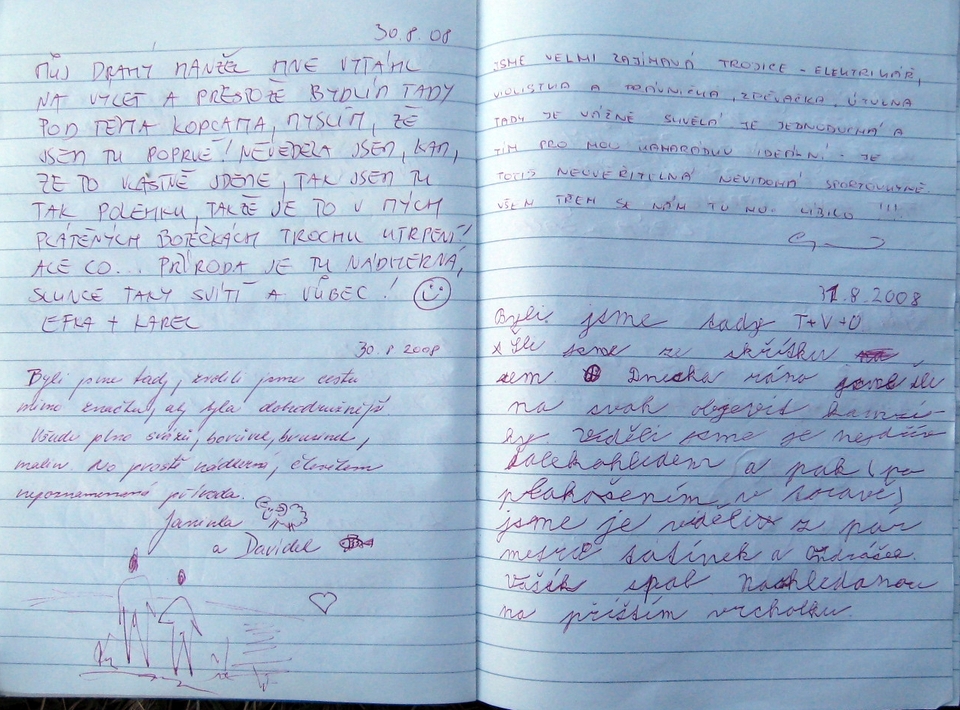 30.8.08
MŮJ DRAHÝ MANŽEL MNE VYTÁHL
NA VÝLET A PŘESTOŽE BYDLÍM TADY
POD TĚMA KOPCAMA, MYSLÍM, ŽE
JSEM TU POPRVÉ! NEVĚDĚLA JSEM, KAM,
ŽE TO VLASTNĚ JDEME, TAK JSEM TU
TAK POLEHKU, TAKŽE JE TO V MÝCH
PLÁTĚNÝCH BOTEČKÁCH TROCHU UTRPENÍ!
ALE CO... PŘÍRODA JE TU NÁDHERNÁ,
SLUNCE TAKY SVÍTÍ A VŮBEC!
EFKA + KAREL
30.8 2008
Byli jsme tady, zvolili jsme cestu
mimo značku, aby byla dobrodružnější
Všude plno svahů, borůvek, brusinek,
malin. No prostě nádherná, člověkem
nepoznamenaná příroda.
Janinka
a Davídek
JSME VELMI ZAJÍMAVÁ TROJICE - ELEKTRIKÁŘ,
VIOLISTKA A ZPĚVAČKA.
TADY JE VÁŽNĚ SKVĚLÁ JE JEDNODUCHÁ A
TÍM PRO MOU KAMARÁDKU IDEÁLNÍ - JE
TOTIŽ NEUVĚŘITELNÁ NEVIDOMÁ SPORTOVKYNĚ.
VŠEM TŘEM SE NÁM TU MOC LÍBILO !!!
31.8.2008
Byli jsme tady T+V+O
Šli jsme ze skřítku
sem. Dneska ráno šli
na svah objevit kamzí-
ky. Viděli jsme je nejdřív
dalekohledem a pak (po
plahočením v borové)
jsme je viděli z pár
metrů tatínek a Ondrášek.
Vašík spal
na příštím vrcholku.